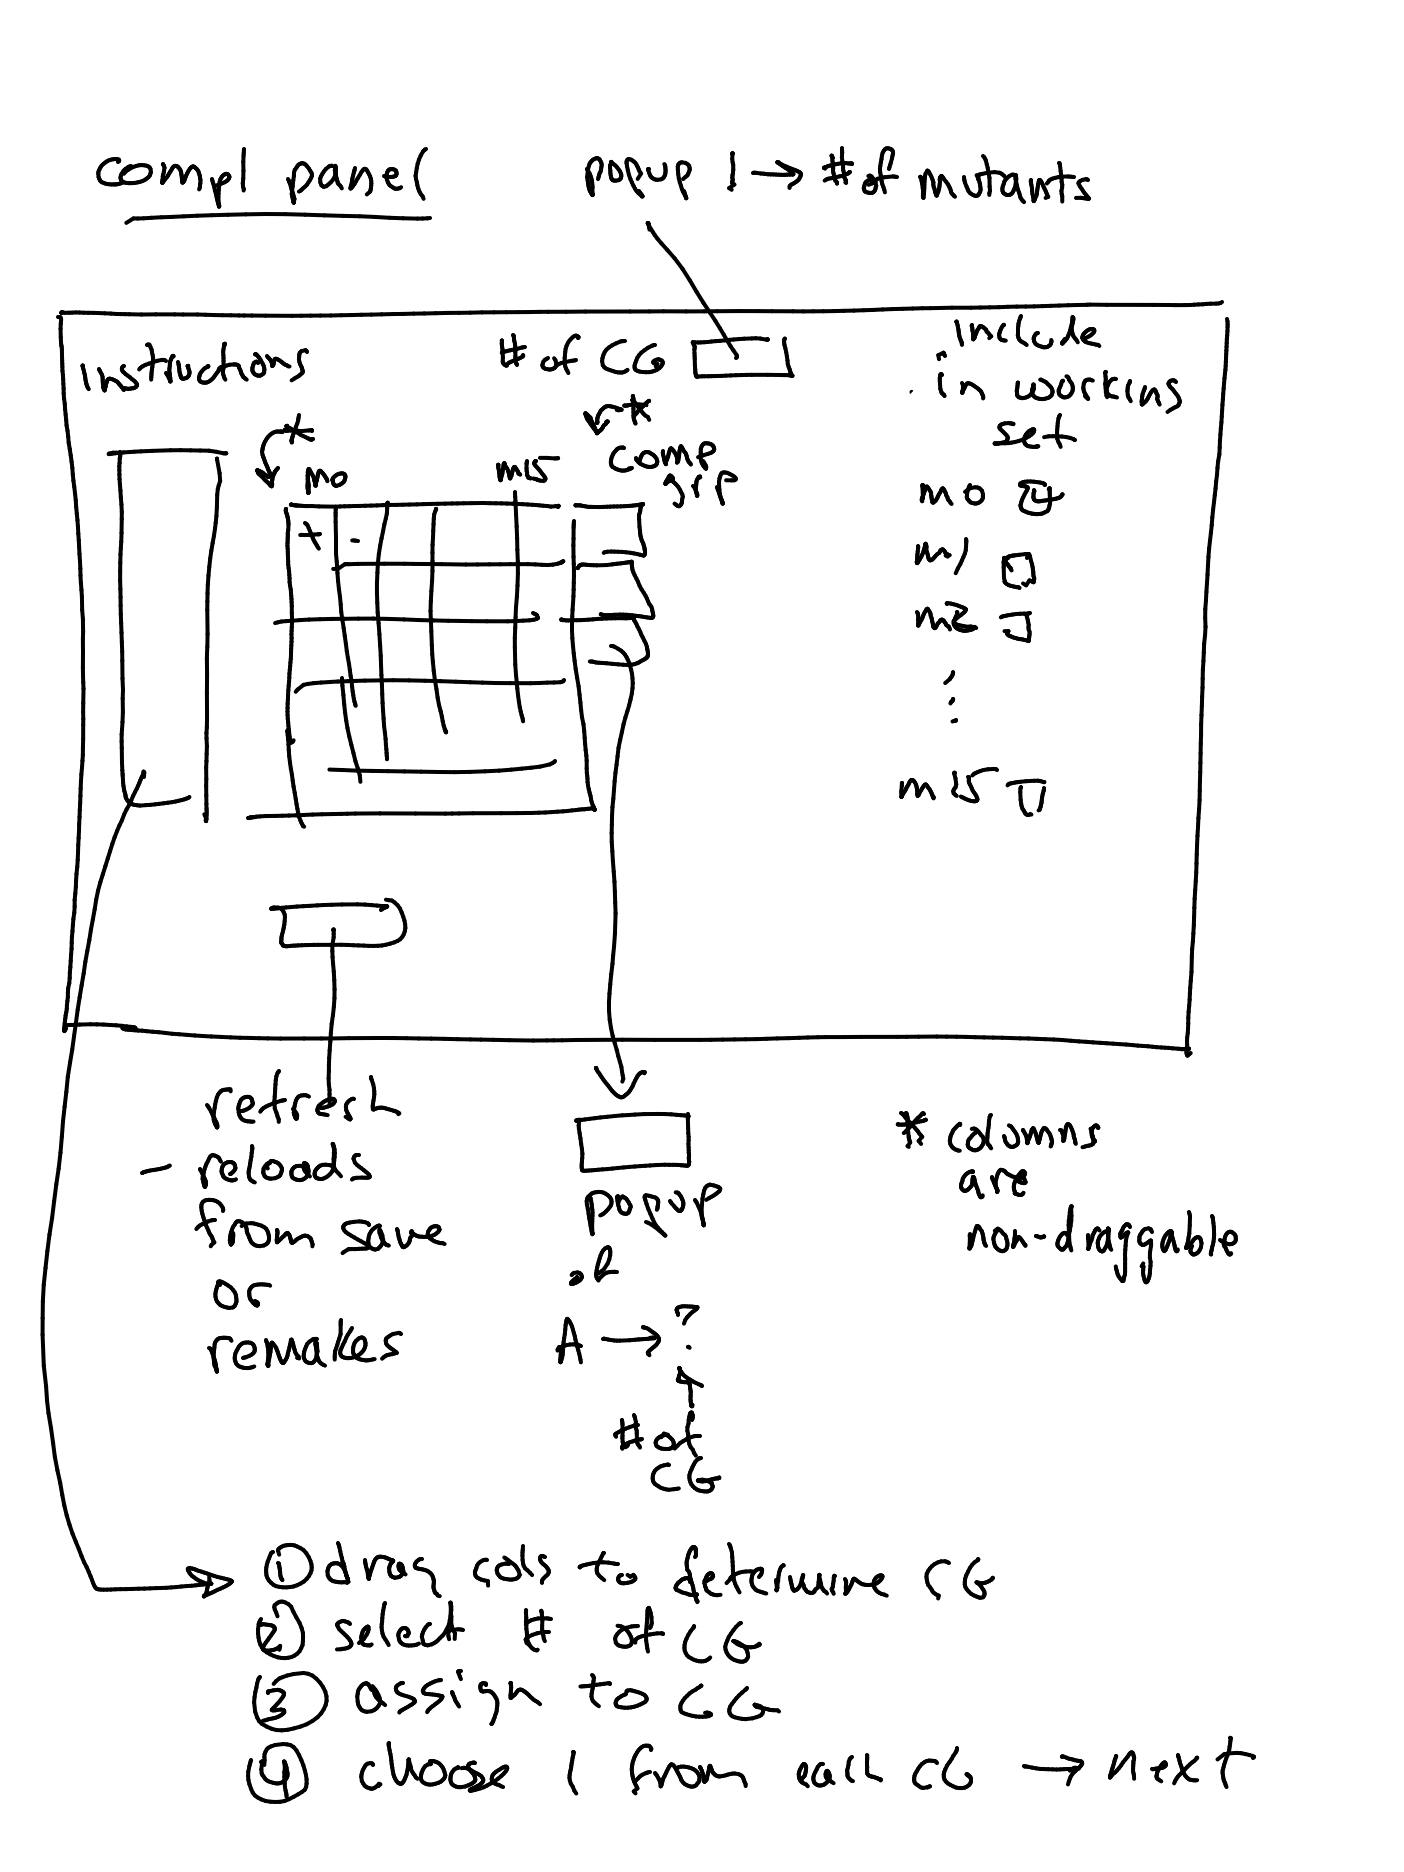 compl panel
popup 1 → # of mutants
Instructions
# of CG
include
in working
set
*
*
comp
grp
m0
m15
+ -
m0
m1
m2
⋮
m15
refresh
- reloads
from save
or
remakes
popup
of
A → ?
↑
# of
CG
* columns
are
non-draggable
① drag cols to determine CG
② select # of CG
③ assign to CG
④ choose 1 from each CG → next